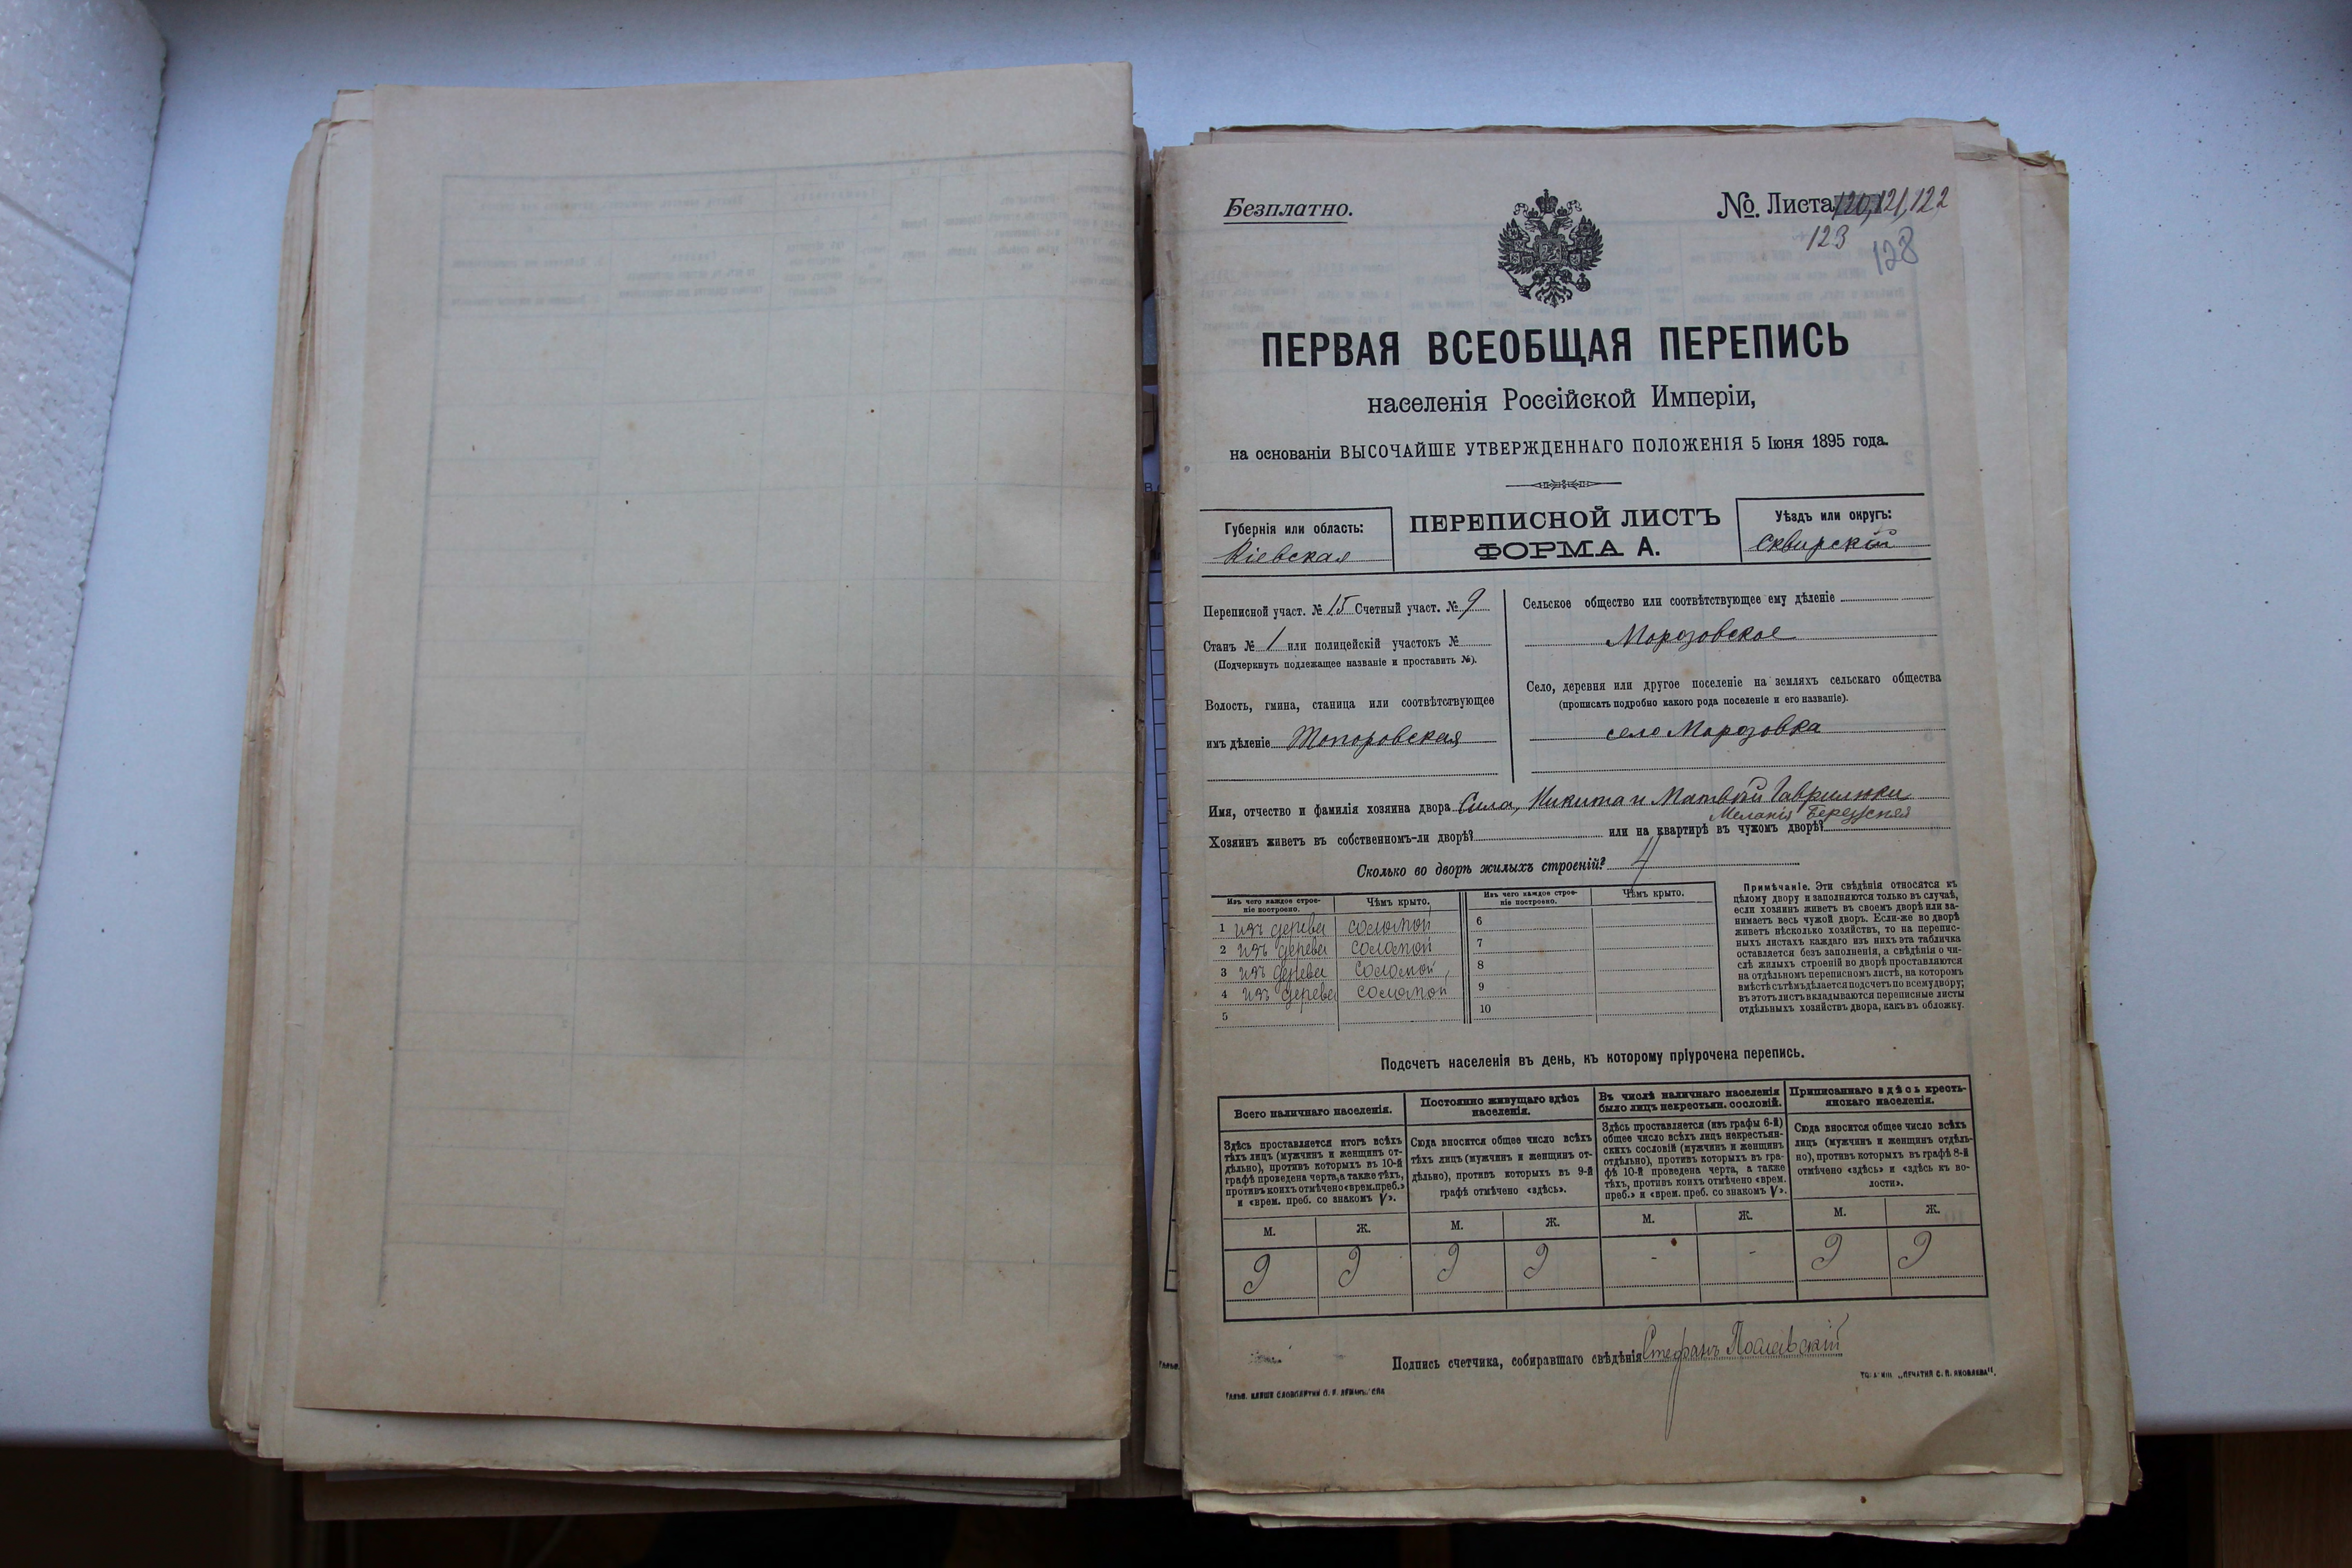 Безплатно.
№ Листа 120, 121, 122
123
128
ПЕРВАЯ ВСЕОБЩАЯ ПЕРЕПИСЬ
населенія Россійской Имперіи,
на основаніи ВЫСОЧАЙШЕ УТВЕРЖДЕННАГО ПОЛОЖЕНІЯ 5 Іюня 1895 года.
Губернія или область:
Кіевская
ПЕРЕПИСНОЙ ЛИСТЪ
ФОРМА А.
Уѣздъ или округъ:
Сквирскій
Переписной участ. № 15 Счетный участ. № 9
Станъ № 1 или полицейскій участокъ №
(Подчеркнуть подлежащее названіе и проставить №).
Волость, гмина, станица или соотвѣтствующее
имъ дѣленіе Топоровская
Сельское общество или соотвѣтствующее ему дѣленіе
Морозовское
Село, деревня или другое поселеніе на земляхъ сельскаго общества
(прописать подробно какого рода поселеніе и его названіе).
село Морозовка
Имя, отчество и фамилія хозяина двора Сила, Никита и Матвѣй Гаврилюки
Меланія
Хозяинъ живетъ въ собственномъ-ли дворѣ? или на квартирѣ въ чужомъ дворѣ?
Сколько во дворѣ жилыхъ строеній? 4
Изъ чего каждое строе-
ніе построено.
Чѣмъ крыто.
1 изъ дерева соломой
2 изъ дерева соломой
3 изъ дерева соломой
4 изъ дерева соломой
5
Изъ чего каждое строе-
ніе построено.
Чѣмъ крыто.
6
7
8
9
10
Примѣчаніе. Эти свѣдѣнія относятся къ
цѣлому двору и заполняются только въ случаѣ,
если хозяинъ живетъ въ своемъ дворѣ или за-
нимаетъ весь чужой дворъ. Если-же во дворѣ
живетъ нѣсколько хозяйствъ, то на перепис-
ныхъ листахъ каждаго изъ нихъ эта табличка
оставляется безъ заполненія, а свѣдѣнія о чи-
слѣ жилыхъ строеній во дворѣ проставляются
на отдѣльномъ переписномъ листѣ, на которомъ
вмѣстѣ съ тѣмъ дѣлается подсчетъ по всему двору;
въ этотъ листъ вкладываются переписные листы
отдѣльныхъ хозяйствъ двора, какъ въ обложку.
Подсчетъ населенія въ день, къ которому пріурочена перепись.
Всего наличнаго населенія.
Здѣсь проставляется итогъ всѣхъ
тѣхъ лицъ (мужчинъ и женщинъ от-
дѣльно), противъ которыхъ въ 10-й
графѣ проведена черта, а также тѣхъ,
противъ коихъ отмѣчено «врем. преб.»
и «врем. преб. со знакомъ V».
Постоянно живущаго здѣсь
населенія.
Сюда вносится общее число всѣхъ
тѣхъ лицъ (мужчинъ и женщинъ от-
дѣльно), противъ которыхъ въ 9-й
графѣ отмѣчено «здѣсь».
Въ числѣ наличнаго населенія
было лицъ некрестьян. сословій.
Здѣсь проставляется (изъ графы 6-й)
общее число всѣхъ лицъ некрестьян-
скихъ сословій (мужчинъ и женщинъ
отдѣльно), противъ которыхъ въ гра-
фѣ 10-й проведена черта, а также
тѣхъ, противъ коихъ отмѣчено «врем.
преб.» и «врем. преб. со знакомъ V».
Приписаннаго здѣсь кресть-
янскаго населенія.
Сюда вносится общее число всѣхъ
лицъ (мужчинъ и женщинъ отдѣль-
но), противъ которыхъ въ графѣ 8-й
отмѣчено «здѣсь» и «здѣсь къ во-
лости».
М. Ж. М. Ж. М. Ж. М. Ж.
9 9 9 9 - - 9 9
Подпись счетчика, собиравшаго свѣдѣнія Стефанъ